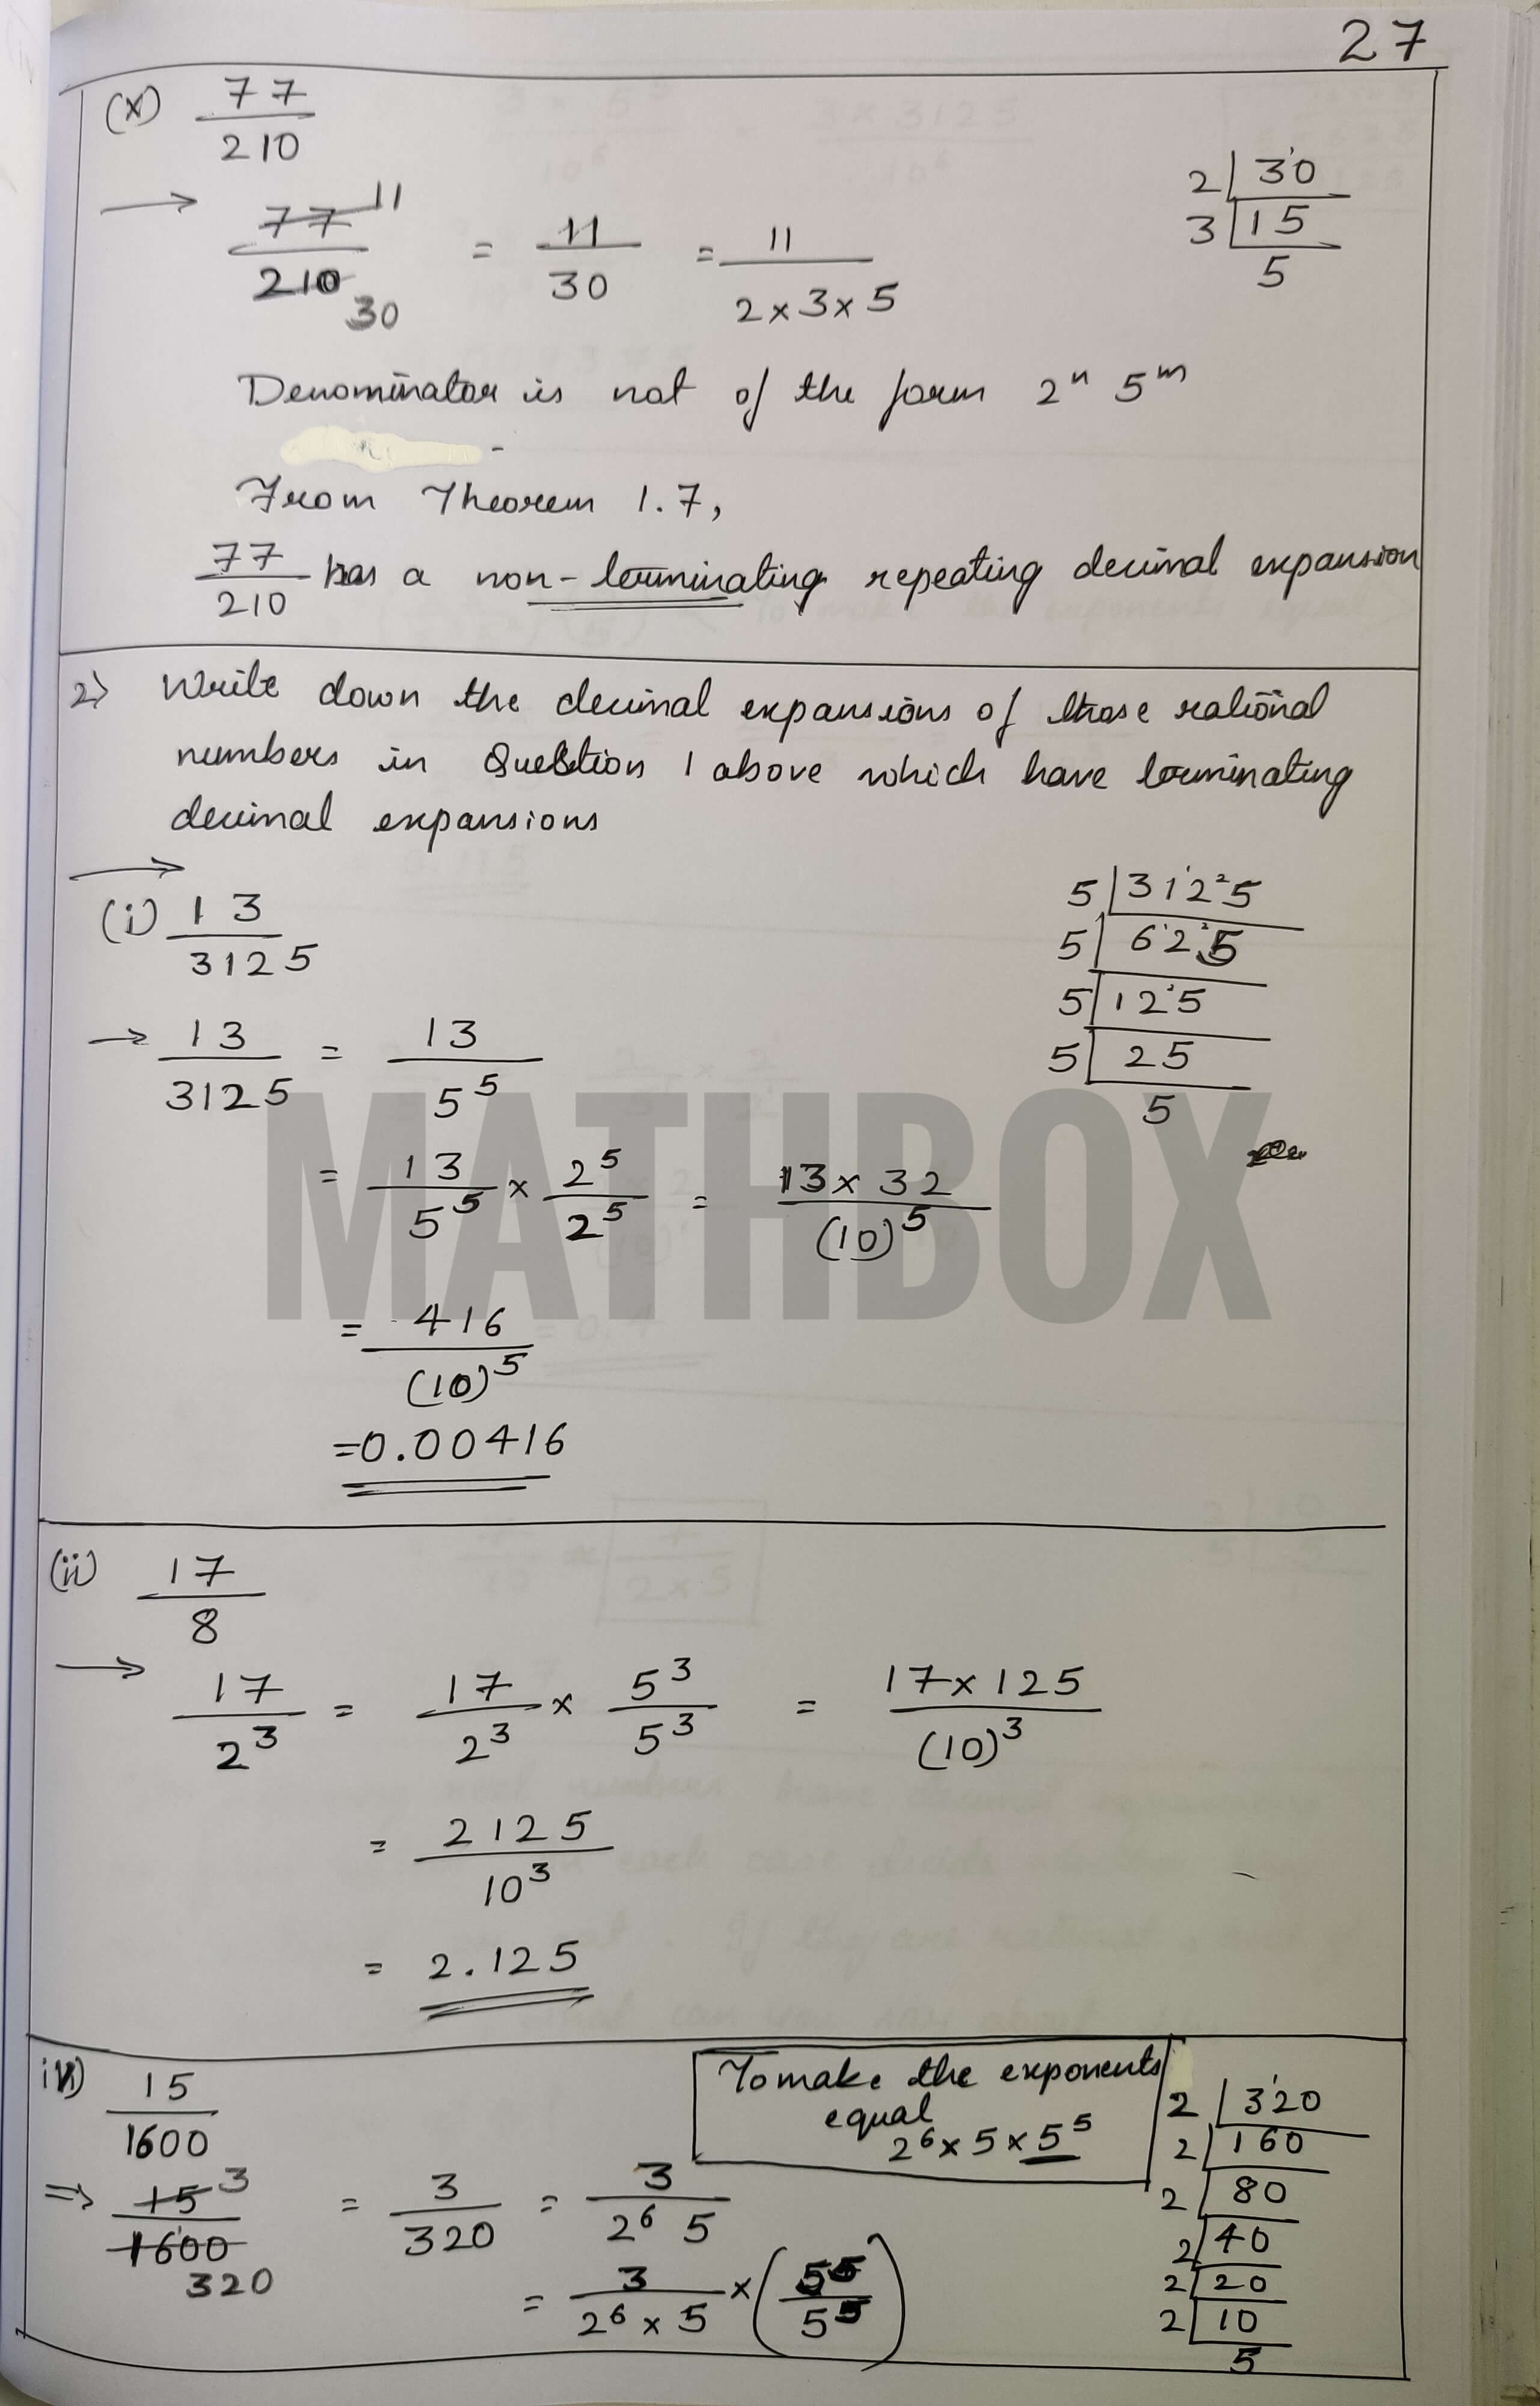 27
(x) 77/210
→ 77/210 11 30 = 11/30 = 11/(2×3×5)
2 | 30
3 | 15
5
Denominator is not of the form 2ⁿ 5ᵐ
From Theorem 1.7,
77/210 has a non-terminating repeating decimal expansion
2) Write down the decimal expansions of those rational
numbers in Question 1 above which have terminating
decimal expansions
→
(i) 13/3125
5 | 3125
5 | 625
5 | 125
5 | 25
5
→ 13/3125 = 13/5⁵
= 13/5⁵ × 2⁵/2⁵ = 13×32/(10)⁵
= 416/(10)⁵
=0.00416
MATHBOX
(ii) 17/8
→ 17/2³ = 17/2³ × 5³/5³ = 17×125/(10)³
= 2125/10³
= 2.125
iv) 15/1600
To make the exponents
equal
2⁶×5×5⁵
2 | 320
2 | 160
2 | 80
2 | 40
2 | 20
2 | 10
5
⇒ 15/1600 3 320 = 3/320 = 3/(2⁶ 5)
= 3/(2⁶×5) × (5⁵/5⁵)